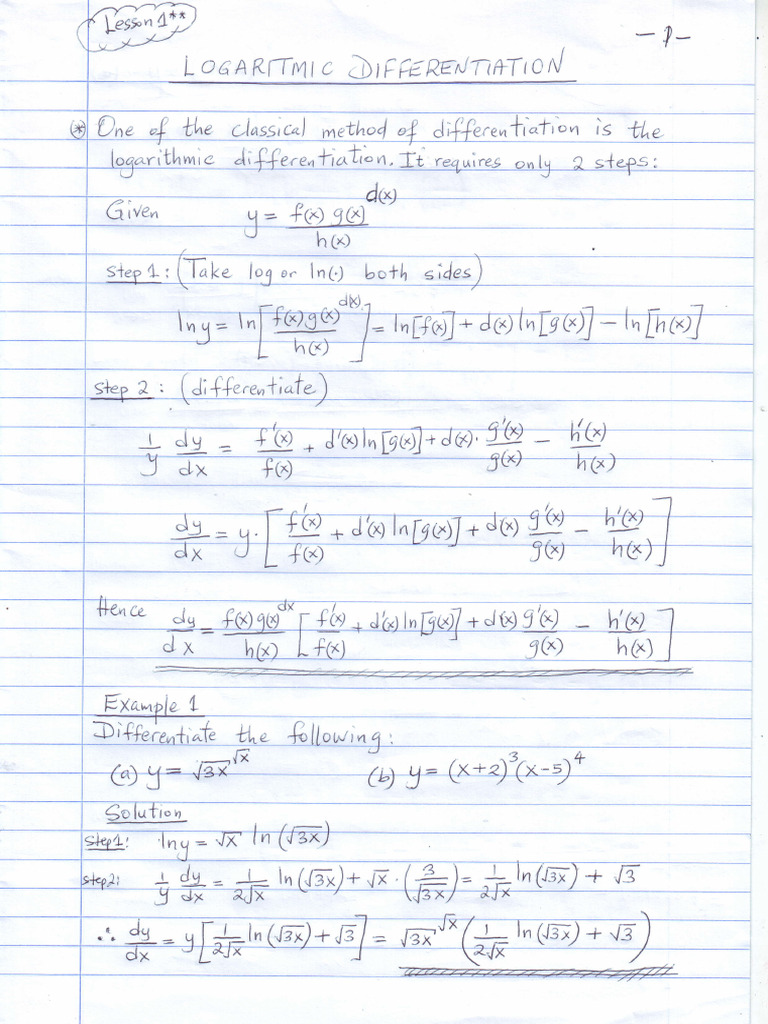 Lesson 1**
- 1 -
LOGARITMIC DIFFERENTIATION
(*) One of the classical method of differentiation is the
logarithmic differentiation. It requires only 2 steps:
Given y = f(x) g(x)^d(x) / h(x)
Step 1: (Take log or ln(·) both sides)
ln y = ln[f(x)g(x)^d(x) / h(x)] = ln[f(x)] + d(x) ln[g(x)] − ln[h(x)]
Step 2: (differentiate)
1/y dy/dx = f'(x)/f(x) + d'(x) ln[g(x)] + d(x)· g'(x)/g(x) − h'(x)/h(x)
dy/dx = y·[f'(x)/f(x) + d'(x) ln[g(x)] + d(x) g'(x)/g(x) − h'(x)/h(x)]
Hence dy/dx = f(x)g(x)^dx / h(x) [f'(x)/f(x) + d'(x) ln[g(x)] + d(x) g'(x)/g(x) − h'(x)/h(x)]
Example 1
Differentiate the following:
(a) y = √3x^√x (b) y = (x+2)^3 (x−5)^4
Solution
Step1: ln y = √x ln(√3x)
Step2: 1/y dy/dx = 1/2√x ln(√3x) + √x·(3/√3x) = 1/2√x ln(√3x) + √3
∴ dy/dx = y[1/2√x ln(√3x) + √3] = √3x^√x (1/2√x ln(√3x) + √3)